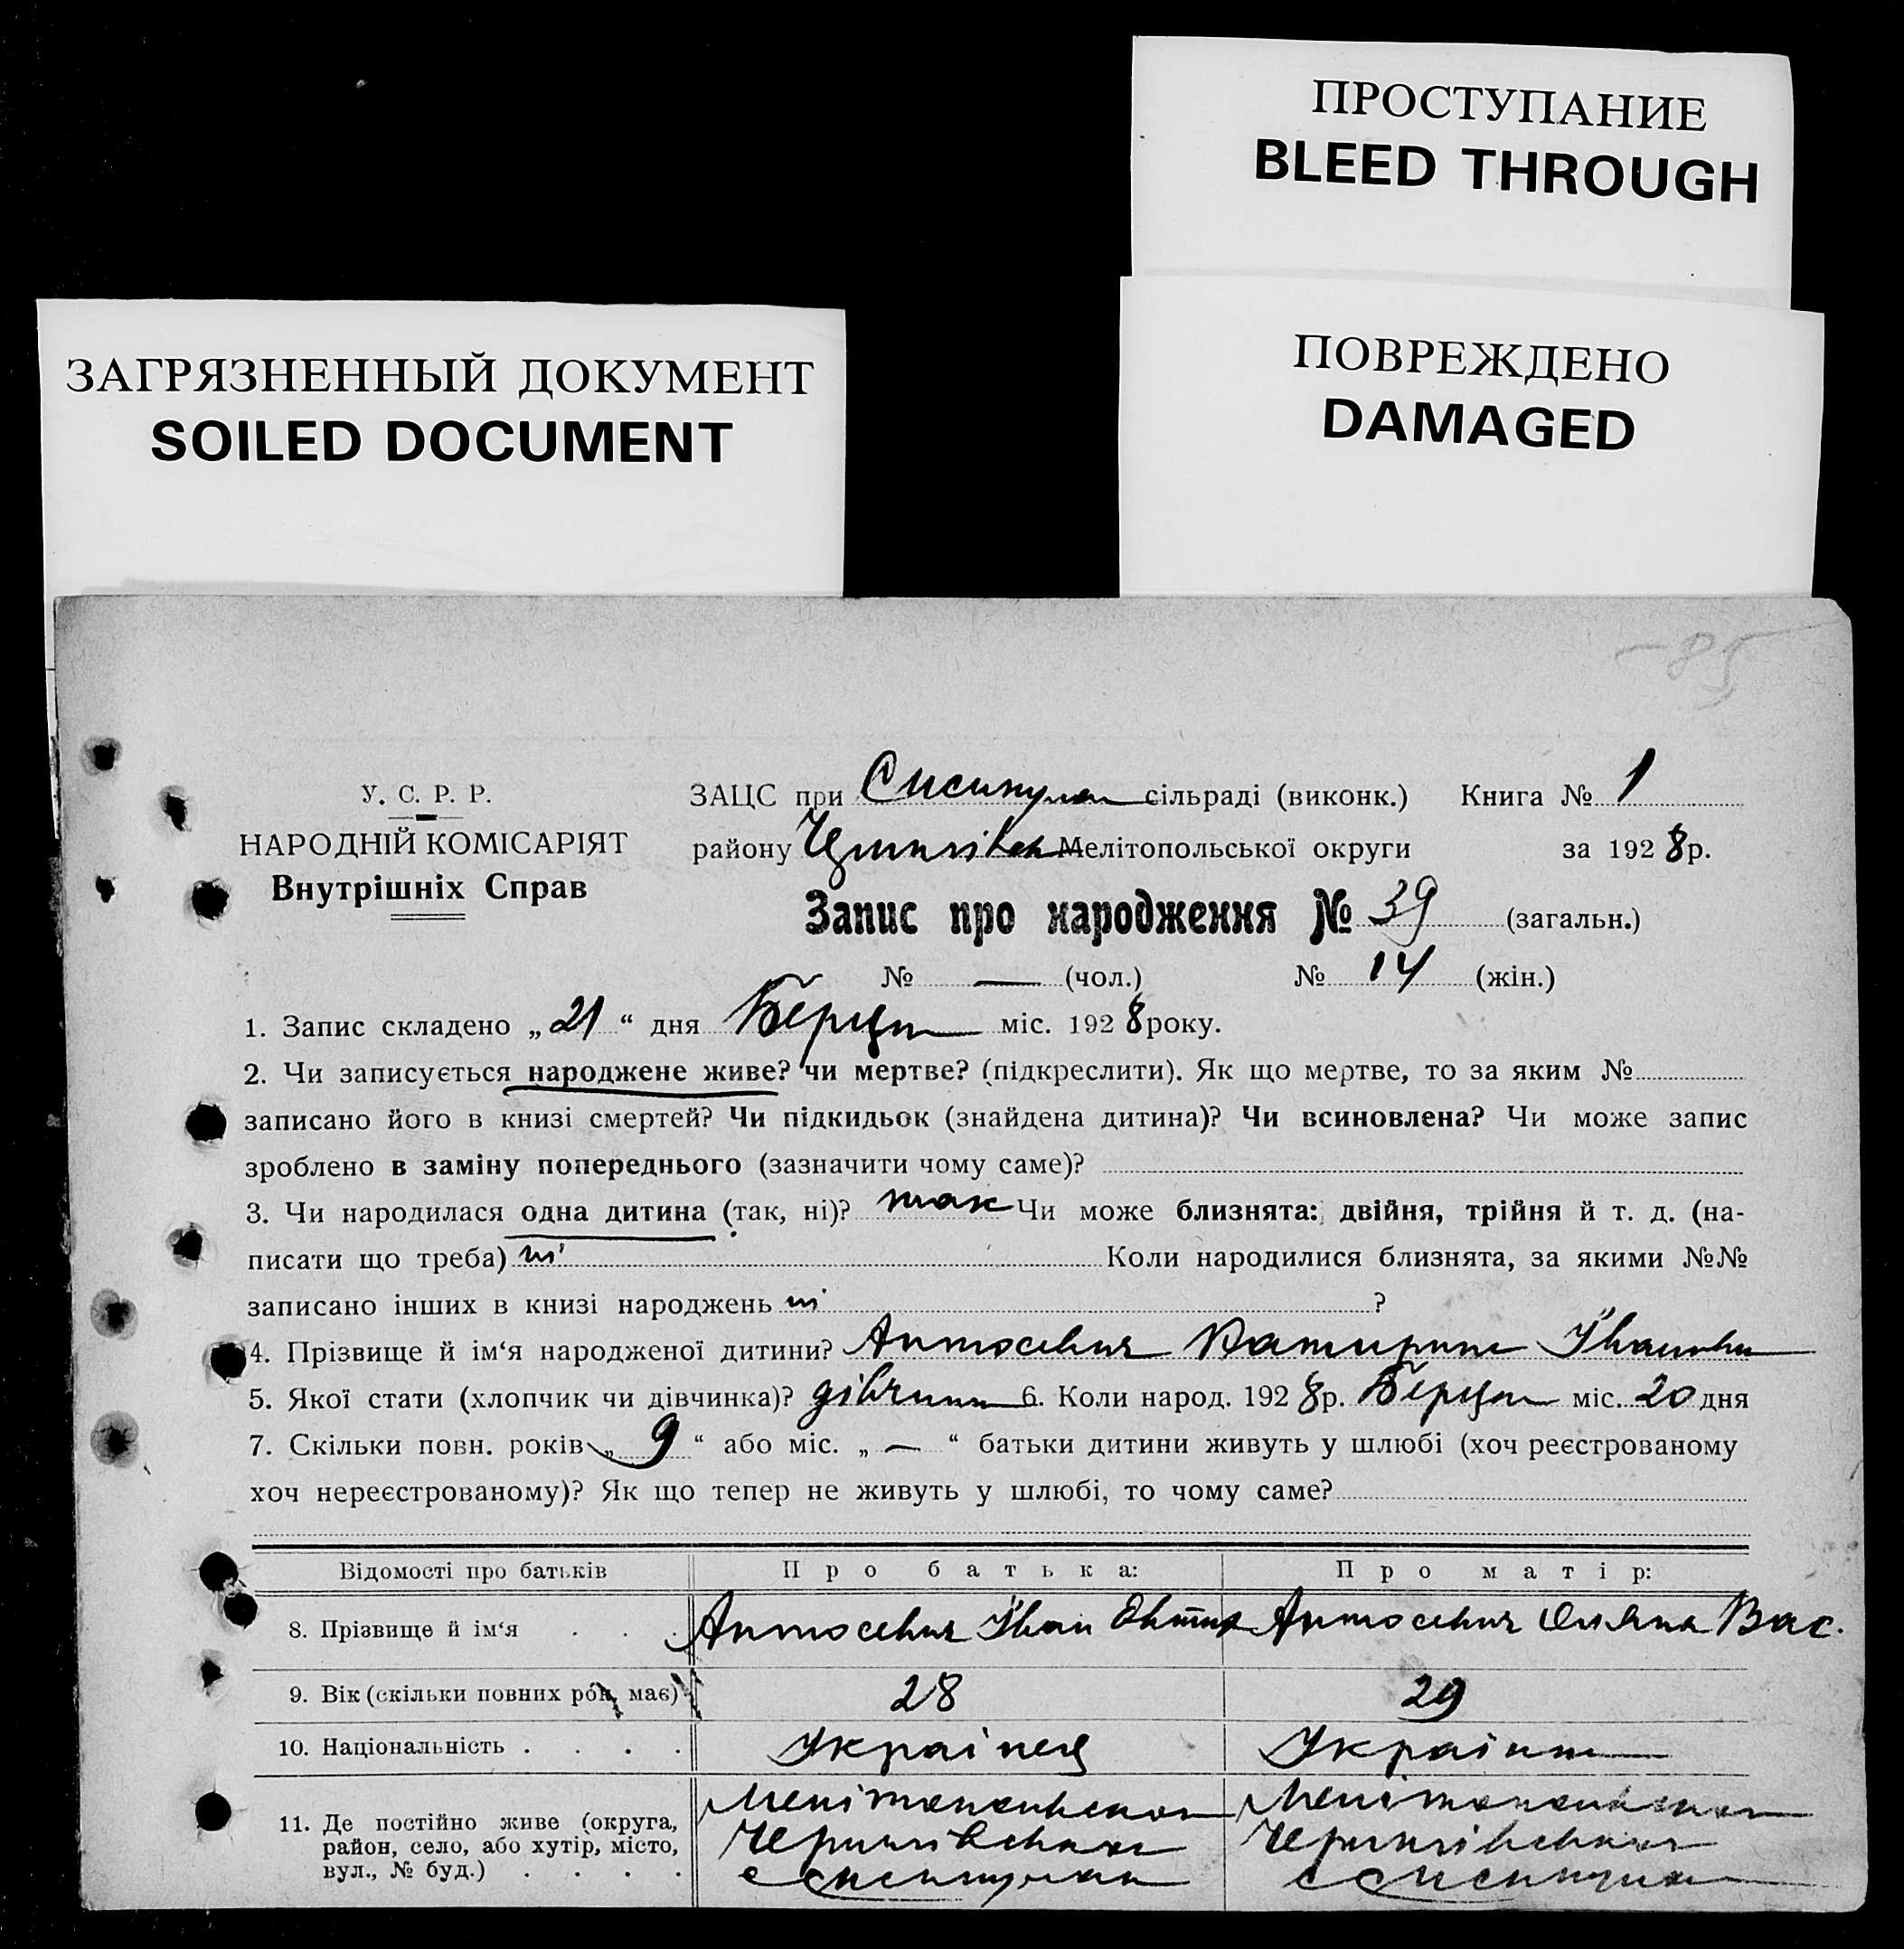 ПРОСТУПАНИЕ
BLEED THROUGH
ЗАГРЯЗНЕННЫЙ ДОКУМЕНТ
SOILED DOCUMENT
ПОВРЕЖДЕНО
DAMAGED
85
У. С. Р. Р.
НАРОДНІЙ КОМІСАРІЯТ
Внутрішніх Справ
ЗАЦС при сільраді (виконк.) Книга № 1
району Мелітопольської округи за 1928р.
Запис про народження № 39 (загальн.)
№ — (чол.) № 14 (жін.)
1. Запис складено „21“ дня Берця міс. 1928 року.
2. Чи записується народжене живе? чи мертве? (підкреслити). Як що мертве, то за яким №
записано його в книзі смертей? Чи підкидьок (знайдена дитина)? Чи всиновлена? Чи може запис
зроблено в заміну попереднього (зазначити чому саме)?
3. Чи народилася одна дитина (так, ні)? так Чи може близнята: двійня, трійня й т. д. (на-
писати що треба) ні Коли народилися близнята, за якими №№
записано інших в книзі народжень ні ?
4. Прізвище й ім‘я народженої дитини? Антосевич Катирина Івановна
5. Якої стати (хлопчик чи дівчинка)? дівчина 6. Коли народ. 1928р. Берця міс. 20 дня
7. Скільки повн. років „9“ або міс. „—“ батьки дитини живуть у шлюбі (хоч реєстрованому
хоч нереєстрованому)? Як що тепер не живуть у шлюбі, то чому саме?
Відомості про батьків Про батька: Про матір:
8. Прізвище й ім‘я . . . Антосевич Іван Антосевич Вас.
9. Вік (скільки повних рок. має) 28 29
10. Національність . . . . Українец Українка
11. Де постійно живе (округа, район, село, або хутір, місто, вул., № буд.) . . . .
Мелітопольська Мелітопольська
Чернигівська Чернигівська